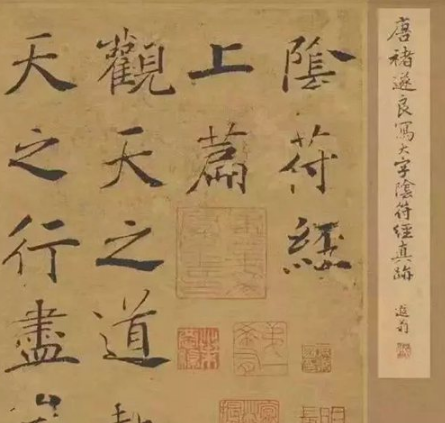 唐褚遂良寫大字陰符經真跡
陰符經
上篇
觀天之道
天之行盡